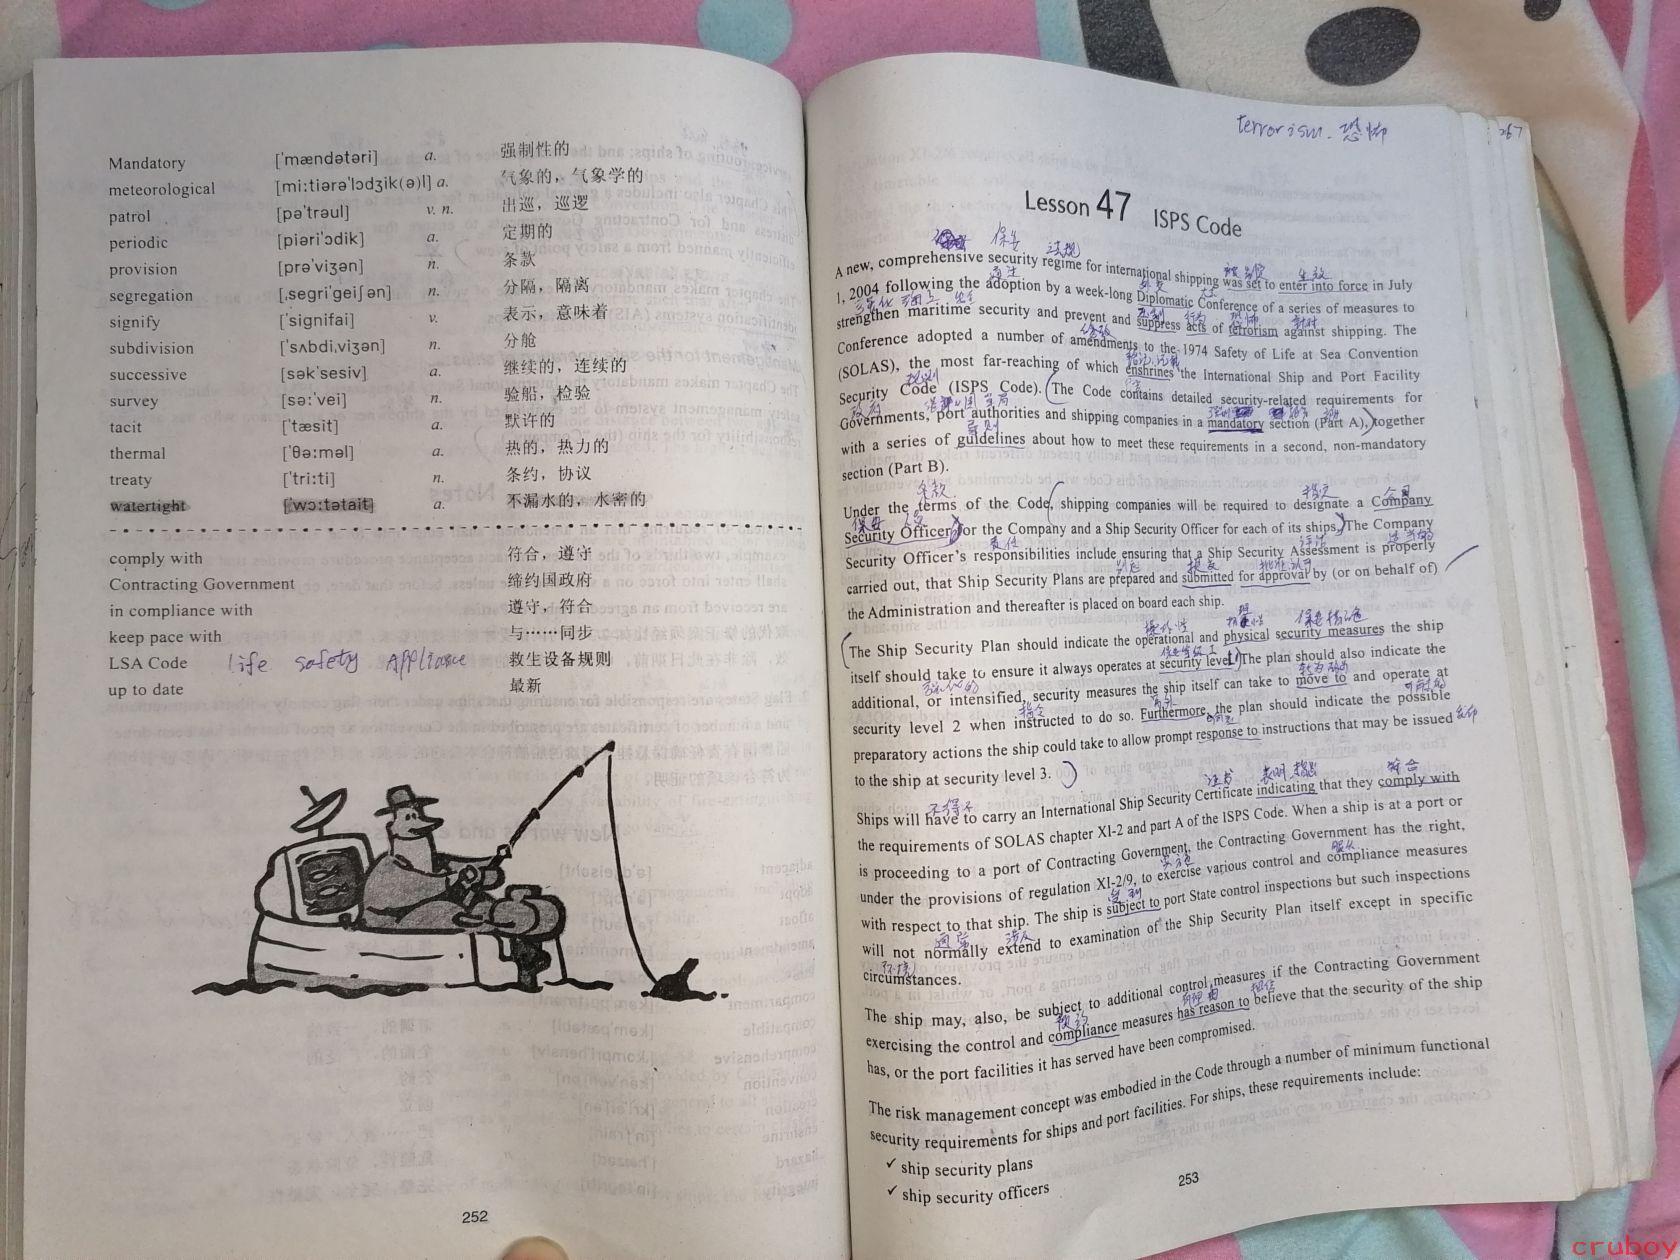 Mandatory ['mændətəri] a. 强制性的
meteorological [mi:tiərə'lɔdʒik(ə)l] a. 气象的，气象学的
patrol [pə'trəul] v. n. 出巡，巡逻
periodic [piəri'ɔdik] a. 定期的
provision [prə'viʒən] n. 条款
segregation [,segri'geiʃən] n. 分隔，隔离
signify ['signifai] v. 表示，意味着
subdivision ['sʌbdi,viʒən] n. 分舱
successive [sək'sesiv] a. 继续的，连续的
survey [sə:'vei] n. 验船，检验
tacit ['tæsit] a. 默许的
thermal ['θə:məl] a. 热的，热力的
treaty ['tri:ti] n. 条约，协议
watertight ['wɔ:tətait] a. 不漏水的，水密的
comply with 符合，遵守
Contracting Government 缔约国政府
in compliance with 遵守，符合
keep pace with 与……同步
LSA Code life safety Appliance 救生设备规则
up to date 最新
252
terrorism. 恐怖
267
Lesson 47 ISPS Code
保安 法规
被制定 生效
A new, comprehensive security regime for international shipping was set to enter into force in July
通过
1, 2004 following the adoption by a week-long Diplomatic Conference of a series of measures to
强化 海上 安全
压制 行为 恐怖 针对
strengthen maritime security and prevent and suppress acts of terrorism against shipping. The
修改
Conference adopted a number of amendments to the 1974 Safety of Life at Sea Convention
(SOLAS), the most far-reaching of which enshrines the International Ship and Port Facility
规则
Security Code (ISPS Code). (The Code contains detailed security-related requirements for
政府
Governments, port authorities and shipping companies in a mandatory section (Part A),) together
导则
with a series of guidelines about how to meet these requirements in a second, non-mandatory
section (Part B).
条款 指定 公司
Under the terms of the Code, (shipping companies will be required to designate a Company
保安
Security Officer) for the Company and a Ship Security Officer for each of its ships.) The Company
责任 评估 适当的
Security Officer's responsibilities include ensuring that a Ship Security Assessment is properly
提交 批准
carried out, that Ship Security Plans are prepared and submitted for approval by (or on behalf of)
the Administration and thereafter is placed on board each ship.
操作性 保安措施
(The Ship Security Plan should indicate the operational and physical security measures the ship
保安等级1
itself should take to ensure it always operates at security level 1.) The plan should also indicate the
强化的
additional, or intensified, security measures the ship itself can take to move to and operate at
指令
security level 2 when instructed to do so. Furthermore, the plan should indicate the possible
响应
preparatory actions the ship could take to allow prompt response to instructions that may be issued 发布
to the ship at security level 3. )
不得不 证书 表明 符合
Ships will have to carry an International Ship Security Certificate indicating that they comply with
the requirements of SOLAS chapter XI-2 and part A of the ISPS Code. When a ship is at a port or
is proceeding to a port of Contracting Government, the Contracting Government has the right,
实施 服从
under the provisions of regulation XI-2/9, to exercise various control and compliance measures
受到
with respect to that ship. The ship is subject to port State control inspections but such inspections
通常 涉及
will not normally extend to examination of the Ship Security Plan itself except in specific
环境
circumstances.
The ship may, also, be subject to additional control measures if the Contracting Government
有理由 相信
exercising the control and compliance measures has reason to believe that the security of the ship
has, or the port facilities it has served have been compromised.
The risk management concept was embodied in the Code through a number of minimum functional
security requirements for ships and port facilities. For ships, these requirements include:
✓ ship security plans
✓ ship security officers
253
cruboy